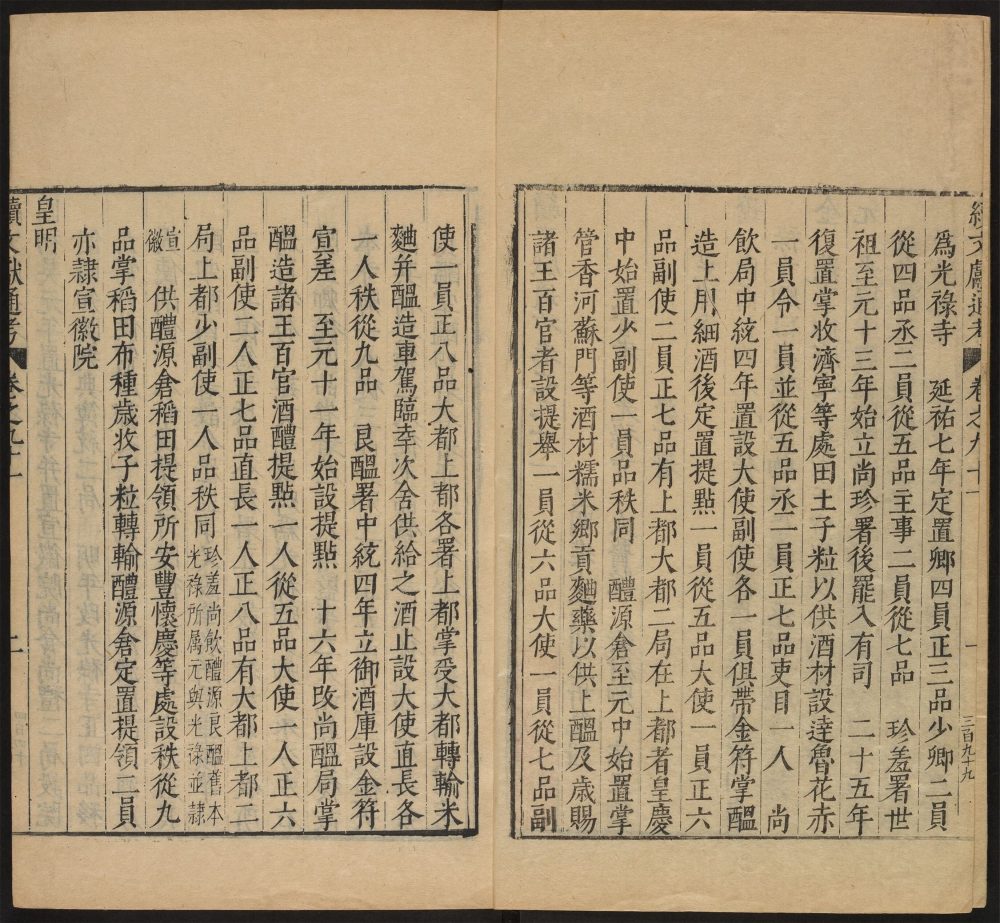 續文獻通考 卷之九十一 一 三百九十九
爲光祿寺 延祐七年定置卿四員正三品少卿二員
從四品丞二員從五品主事二員從七品 珍羞署世
祖至元十三年始立尚珍署後罷入有司 二十五年
復置掌收濟寧等處田土子粒以供酒材設達魯花赤
一員令一員並從五品丞二員正七品吏目一人 尚
飲局中統四年置設大使副使各一員俱帶金符掌醞
造上用細酒後定置提點一員從五品大使一員正六
品副使二員正七品有上都大都二局在上都者皇慶
中始置少副使一員品秩同 醴源倉至元中始置掌
管香河蘇門等酒材糯米鄉貢麯藥以供上醞及歲賜
諸王百官者設提舉一員從六品大使一員從七品副
使一員正八品大都上都各署上都掌受大都轉輸米
麯并醞造車駕臨幸次舍供給之酒止設大使直長各
一人秩從九品 良醞署中統四年立御酒庫設金符
宣差 至元十一年始設提點 十六年改尚醞局掌
醞造諸王百官酒醴提點一人從五品大使一人正六
品副使二人正七品直長一人正八品有大都上都二
局上都少副使一人品秩同
珍羞尚飲醴源良醞舊本
光祿所属元與光祿並隷
宣
徽
供醴源倉稻田提領所安豐懷慶等處設秩從九
品掌稻田布種歲收子粒轉輸醴源倉定置提領二員
亦隷宣徽院
皇明
續文獻通考 卷之九十一 二